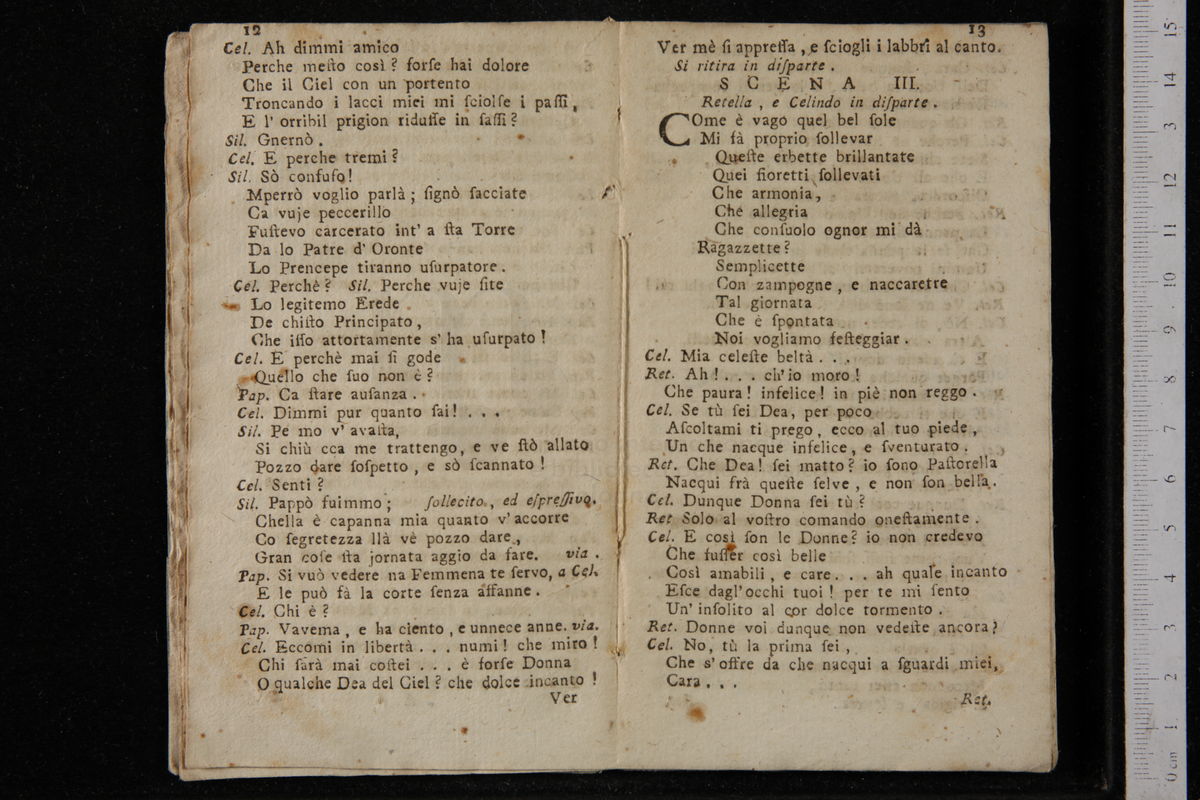 12
Cel. Ah dimmi amico
Perche meſto così ? forſe hai dolore
Che il Ciel con un portento
Troncando i lacci miei mi ſciolſe i paſſi,
E l' orribil prigion riduſſe in ſaſſi ?
Sil. Gnernò .
Cel. E perche tremi ?
Sil. Sò confuſo !
Mperrò voglio parlà ; ſignò ſacciate
Ca vuje peccerillo
Fuſtevo carcerato int' a ſta Torre
Da lo Patre d' Oronte
Lo Prencepe tiranno uſurpatore .
Cel. Perchè ? Sil. Perche vuje ſite
Lo legitemo Erede
De chiſto Principato ,
Che iſſo attortamente s' ha uſurpato !
Cel. E perchè mai ſi gode
Quello che ſuo non è ?
Pap. Ca ſtare auſanza .
Cel. Dimmi pur quanto ſai ! . . .
Sil. Pe mo v' avaſta,
Si chiù cca me trattengo, e ve ſtò allato
Pozzo dare ſoſpetto , e sò ſcannato !
Cel. Senti ?
Sil. Pappò fuimmo ; ſollecito , ed eſpreſſivo.
Chella è capanna mia quanto v' accorre
Co ſegretezza llà vè pozzo dare ,
Gran coſe ſta jornata aggio da fare. via .
Pap. Si vuò vedere na Femmena te ſervo, a Cel.
E le può fà la corte ſenza affanne .
Cel. Chi è ?
Pap. Vavema , e ha ciento , e unnece anne. via.
Cel. Eccomi in libertà . . . numi ! che miro !
Chi ſarà mai coſtei . . . è forſe Donna
O qualche Dea del Ciel ? che dolce incanto !
Ver
13
Ver mè ſi appreſſa , e ſciogli i labbri al canto.
Si ritira in diſparte .
SCENA III.
Retella , e Celindo in diſparte .
COme è vago quel bel ſole
Mi fà proprio ſollevar
Queſte erbette brillantate
Quei fioretti ſollevati
Che armonia ,
Che allegria
Che conſuolo ognor mi dà
Ragazzette ?
Semplicette
Con zampogne , e naccarette
Tal giornata
Che è ſpontata
Noi vogliamo feſteggiar .
Cel. Mia celeſte beltà . . .
Ret. Ah ! . . . ch' io moro !
Che paura ! infelice ! in piè non reggo .
Cel. Se tù ſei Dea, per poco
Aſcoltami ti prego , ecco al tuo piede ,
Un che nacque infelice , e ſventurato .
Ret. Che Dea ! ſei matto ? io ſono Paſtorella
Nacqui frà queſte ſelve , e non ſon bella .
Cel. Dunque Donna ſei tù ?
Ret Solo al voſtro comando oneſtamente .
Cel. E così ſon le Donne ? io non credevo
Che fuſſer così belle
Così amabili , e care . . . ah quale incanto
Eſce dagl' occhi tuoi ! per te mi ſento
Un' inſolito al cor dolce tormento .
Ret. Donne voi dunque non vedeſte ancora ?
Cel. No, tù la prima ſei ,
Che s' offre da che nacqui a ſguardi miei,
Cara . . .
Ret.
15
14
13
12
11
10
9
8
7
6
5
4
3
2
1
0 cm